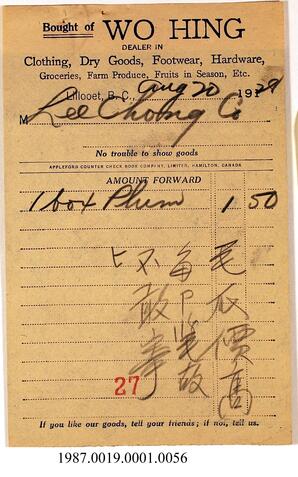 Bought of WO HING
DEALER IN
Clothing, Dry Goods, Footwear, Hardware,
Groceries, Farm Produce, Fruits in Season, Etc.
Lillooet, B. C., Aug 20 1929
M Lee Chong Co
No trouble to show goods
APPLEFORD COUNTER CHECK BOOK COMPANY, LIMITED, HAMILTON, CANADA
AMOUNT FORWARD
1 box Plum 1 50
價高
每
故
不敢
27
If you like our goods, tell your friends; if not, tell us.
1987.0019.0001.0056